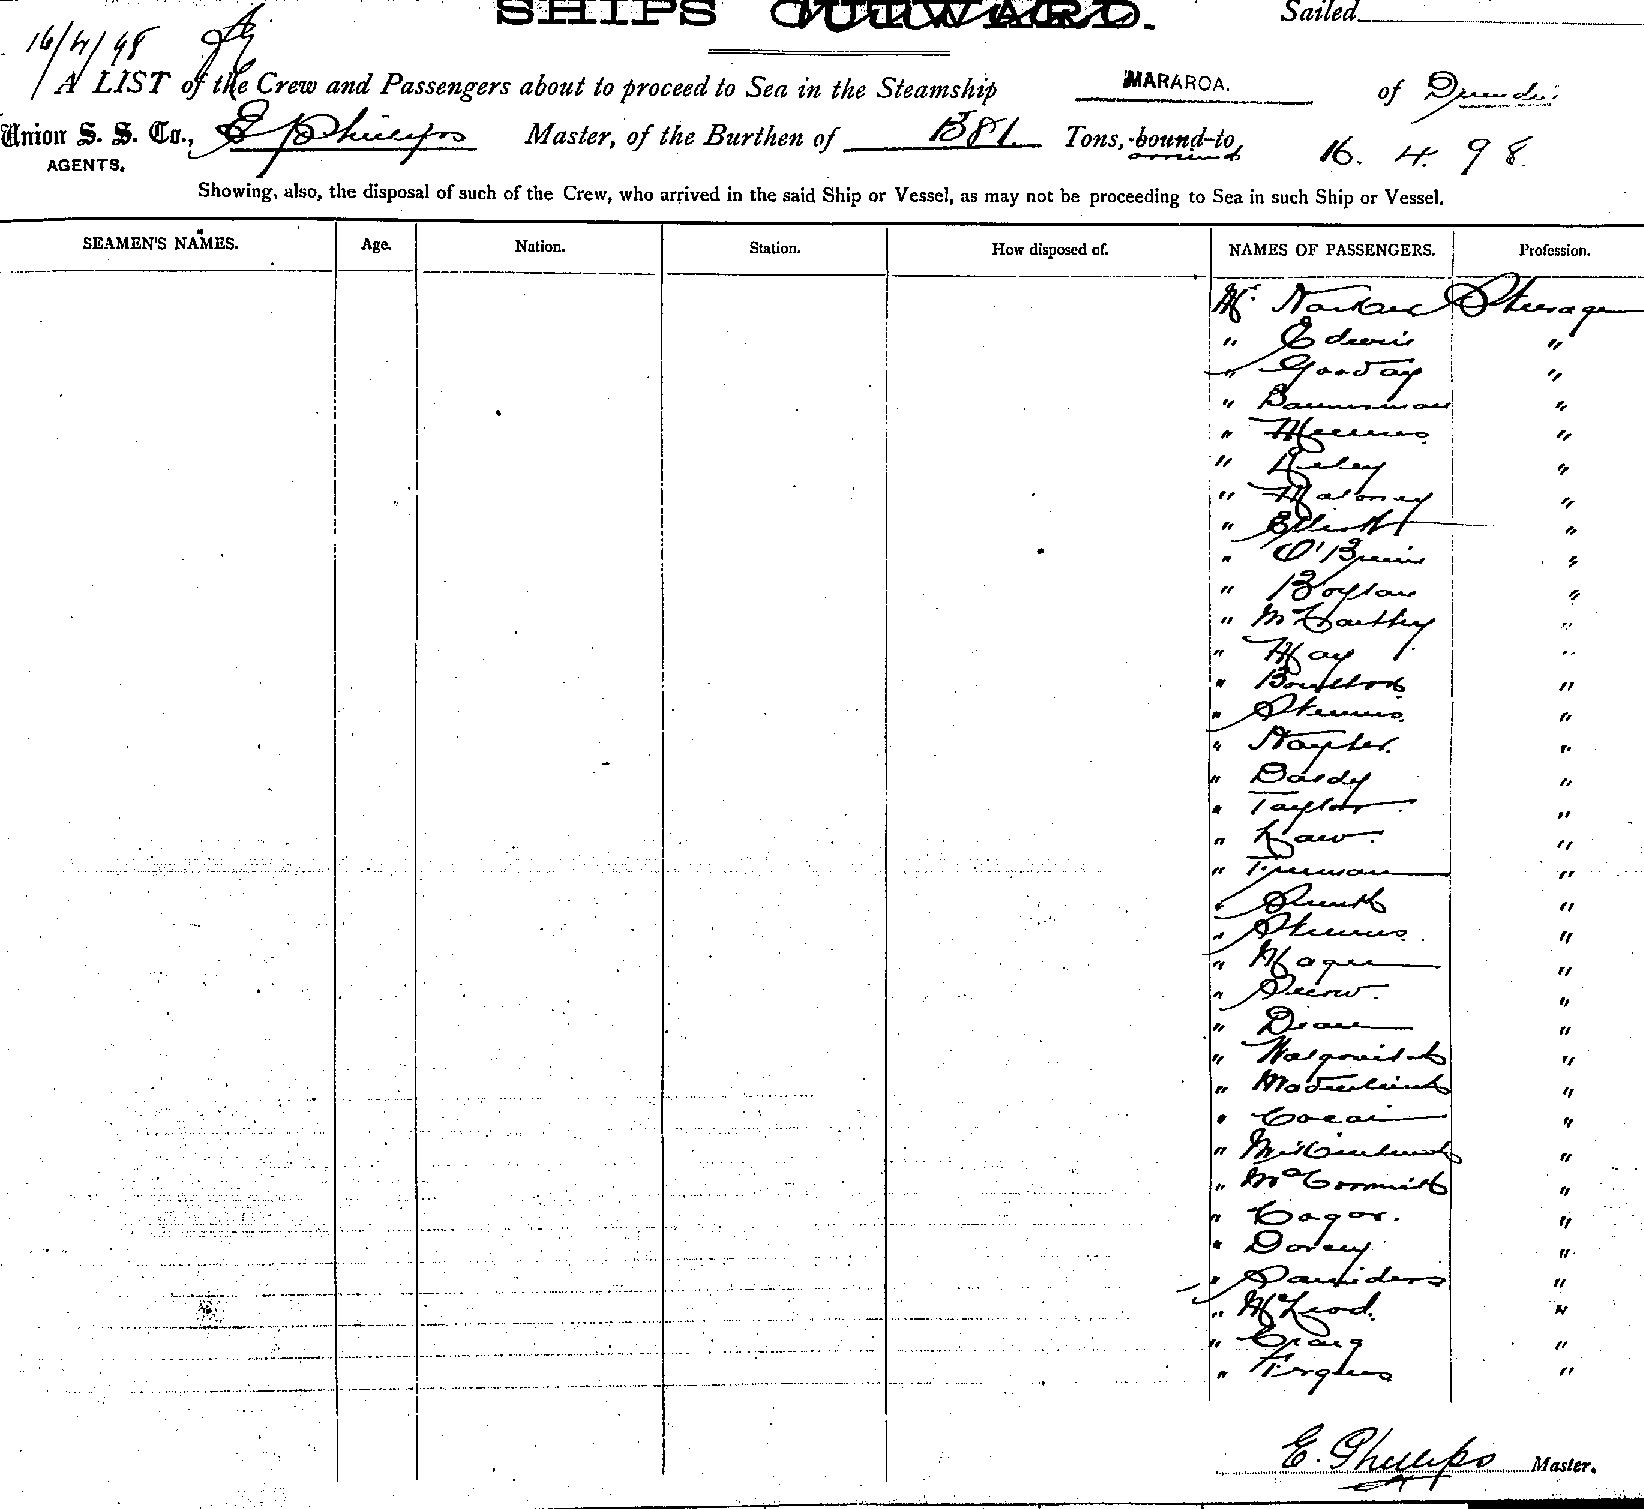 SHIPS OUTWARD.
Sailed
16/4/98
A LIST of the Crew and Passengers about to proceed to Sea in the Steamship MARAROA. of Dunedin
Union S. S. Co., E Phillips Master, of the Burthen of 1381. Tons, bound to 16. 4. 98.
AGENTS.
Showing, also, the disposal of such of the Crew, who arrived in the said Ship or Vessel, as may not be proceeding to Sea in such Ship or Vessel.
SEAMEN'S NAMES. Age. Nation. Station. How disposed of. NAMES OF PASSENGERS. Profession.
Mr Steerage
" Edwin "
" Gooday "
" Bannerman "
" "
" Kiley "
" Maloney "
" Elliott "
" O'Brien "
" Boylan "
" McCarthy "
" May "
" "
" Stevens "
" Naylor "
" Dardy "
" Taylor "
" Law "
" Freeman "
" Smith "
" Stevens "
" Magee "
" Snow. "
" Dean "
" "
" "
" "
" "
" McCormick "
" Cagor. "
" Dorey "
" Saunders "
" McLeod. "
" Craig "
" Fergus "
E. Phillips Master.